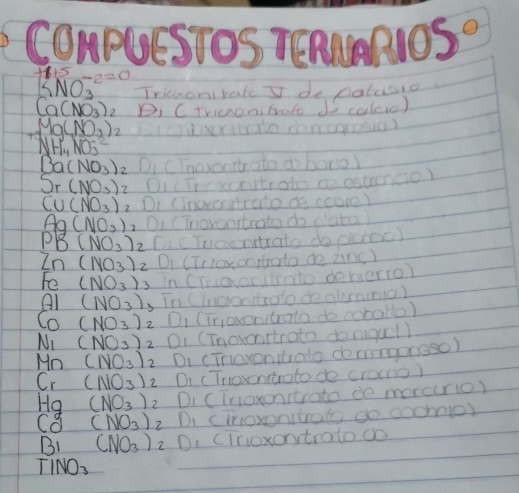 COMPUESTOS TERNARIOS
+1+5 -2=0
KNO3 Trioxonitrato V de potasio
Ca(NO3)2 Di (Trioxonitrato de calcio)
Mg(NO3)2
NH4NO3
Ba(NO3)2 Di (Trioxonitrato de bario)
Sr (NO3)2 Di (Trioxonitrato de estroncio)
CU (NO3)2 Di (Trioxonitrato de cobre)
Ag (NO3)2 Di (Trioxonitrato de plata)
PB (NO3)2 Di (Trioxonitrato de plomo)
Zn (NO3)2 Di (Trioxonitrato de zinc)
Fe (NO3)3 Tri (Trioxonitrato de hierro)
Al (NO3)3 Tri (Trioxonitrato de aluminio)
Co (NO3)2 Di (Trioxonitrato de cobalto)
Ni (NO3)2 Di (Trioxonitrato de niquel)
Mn (NO3)2 Di (Trioxonitrato de manganeso)
Cr (NO3)2 Di (Trioxonitrato de cromo)
Hg (NO3)2 Di (Trioxonitrato de mercurio)
Cd (NO3)2 Di (Trioxonitrato de
Bi (NO3)2 Di (Trioxonitrato do
TlNO3